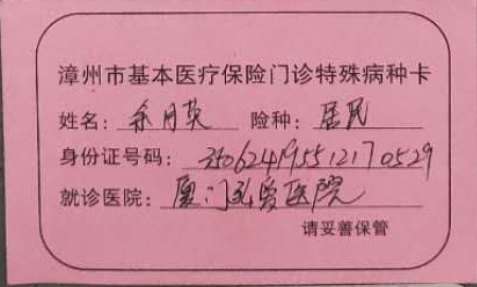 漳州市基本医疗保险门诊特殊病种卡
姓名：余月英 险种：居民
身份证号码：350624195512170529
就诊医院：厦门弘爱医院
请妥善保管